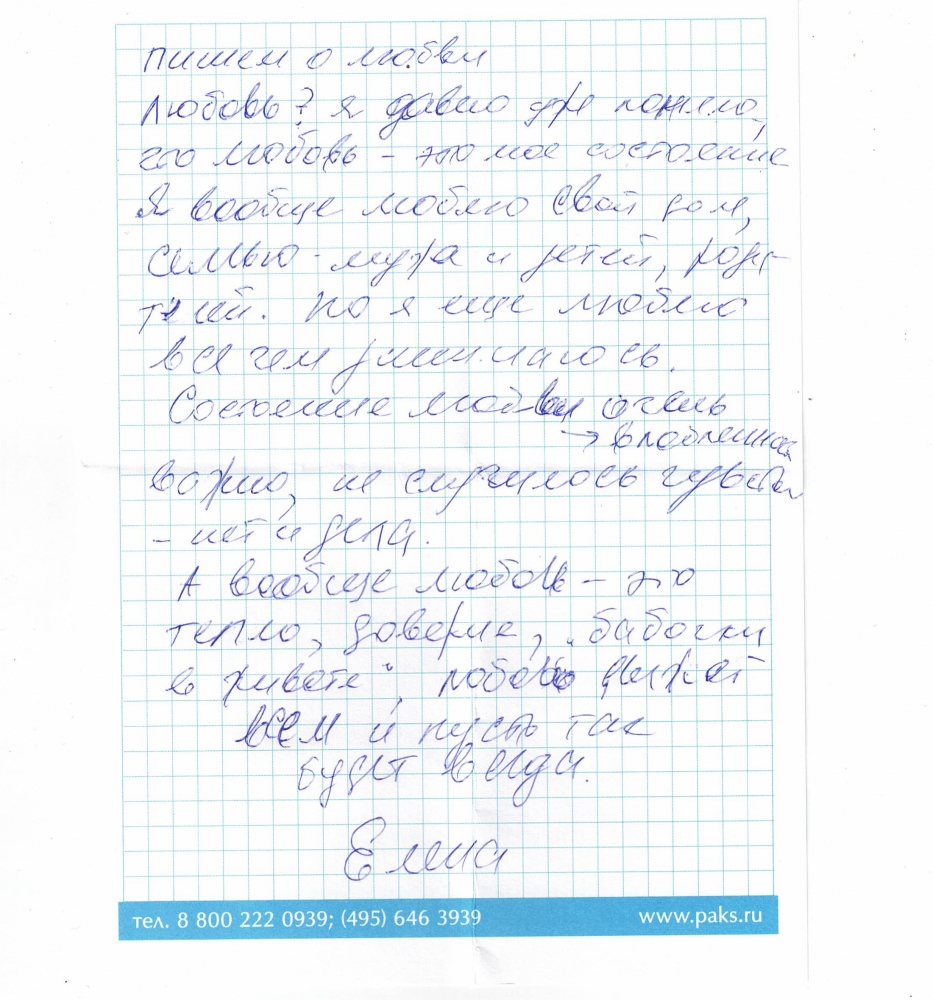 пишем о любви
Любовь? я давно уже поняла,
что любовь – это мое состояние
Я вообще люблю свой дом,
семью - мужа и детей, роди-
телей. Но я еще люблю
все чем занималась.
Состояние любви очень
→ влюбленность
важно, не случилось чувства
– нет и дела.
А вообще любовь – это
тепло, доверие, „бабочки
в животе“, любовь движет
всем и пусть так
будет всегда.
Елена
тел. 8 800 222 0939; (495) 646 3939
www.paks.ru